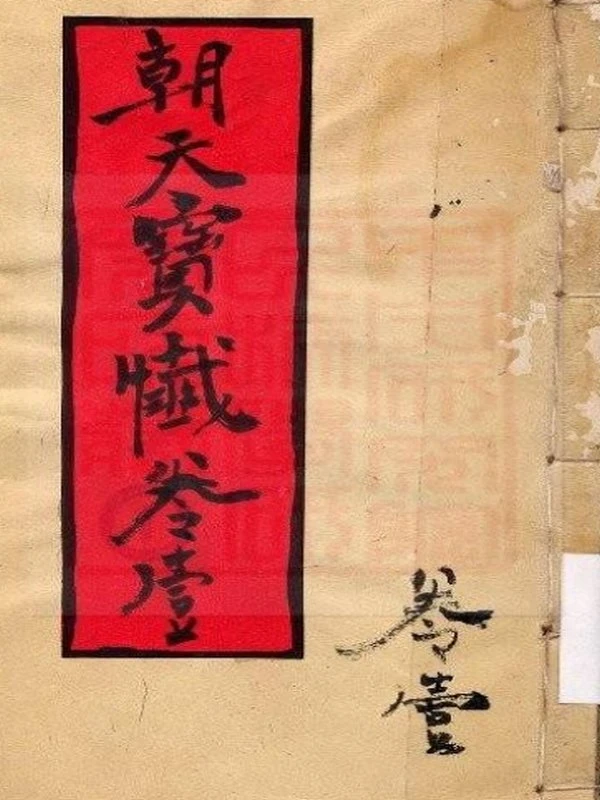 朝天寶懺卷壹
卷壹